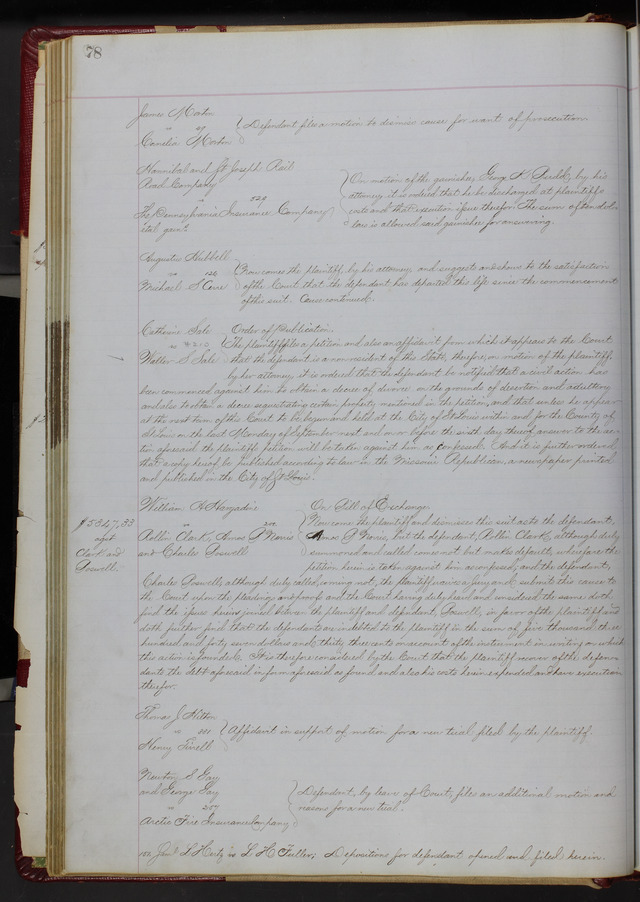 78
James Morton
vs 97
Canelia Morton
Defendant files a motion to dismiss cause for want of prosecution
Hannibal and St Joseph Rail
Road Company
vs 529
The Pennsylvania Insurance Company
et al garn.
On motion of the garnishee, George by his
attorney it is ordered that he be discharged at plaintiffs
costs and that execution issue therefor. The sum of ten dol-
lars is allowed said garnishee for answering.
Augustus Hubbell
vs
Michael S Cerre
Now comes the plaintiff, by his attorney and suggests and shows to the satisfaction
of the Court that the defendant has departed this life since the commencement
of this suit. Cause continued.
Catherine Sale
vs 4210
Walter S Sale
Order of Publication.
The plaintiff files a petition and also an affidavit from which it appears to the Court
that the defendant is a non resident of this State, therefore, on motion of the plaintiff,
by her attorney, it is ordered that the defendant be notified that a civil action has
been commenced against him to obtain a decree of divorce on the grounds of desertion and adultery
and also to obtain a decree certain property mentioned in the petition, and that unless he appear
at the next term of this Court to be begun and held at the City of St Louis within and for the County of
St Louis on the last Monday of September next and on or before the sixth day thereof, answer to the ac-
tion aforesaid, the plaintiffs petition will be taken against him as confessed. And it is further ordered
that a copy hereof be published according to law in the Missouri Republican, a newspaper printed
and published in the City of St Louis.
$5347,33
agst
Clark and
Boswell
William A Hargadine
vs
Rollin Clark, Amos P Norris
and Charles Boswell
On Bill of Exchange
Now come the plaintiff and dismisses this suit as to the defendant,
Amos P Norris, but the defendant, Rollin Clark, although duly
summoned and called comes not but makes default, wherefore the
petition herein is taken against him as confessed, and the defendant,
Charles Boswell, although duly called, coming not, the plaintiff waives a jury and submits this cause to
the Court upon the pleadings and proofs and the Court having duly heard and considered the same doth
find the issues herein joined between the plaintiff and defendant, Boswell, in favor of the plaintiff and
doth further find that the defendants are indebted to the plaintiff in the sum of five thousand three
hundred and forty seven dollars and thirty three cents on account of the instrument in writing on which
this action is founded. It is therefore considered by the Court that the plaintiff recover of the defen-
dants the debt aforesaid in form aforesaid as found and also his costs herein expended and have execution
therefor.
Thomas J
vs
Henry
Affidavit in support of motion for a new trial filed by the plaintiff.
Newton S Gay
and George Gay
vs 257
Arctic Fire Insurance Company
Defendant, by leave of Court, files an additional motion and
reasons for a new trial.
L vs L H Fuller; Depositions for defendant opened and filed herein.